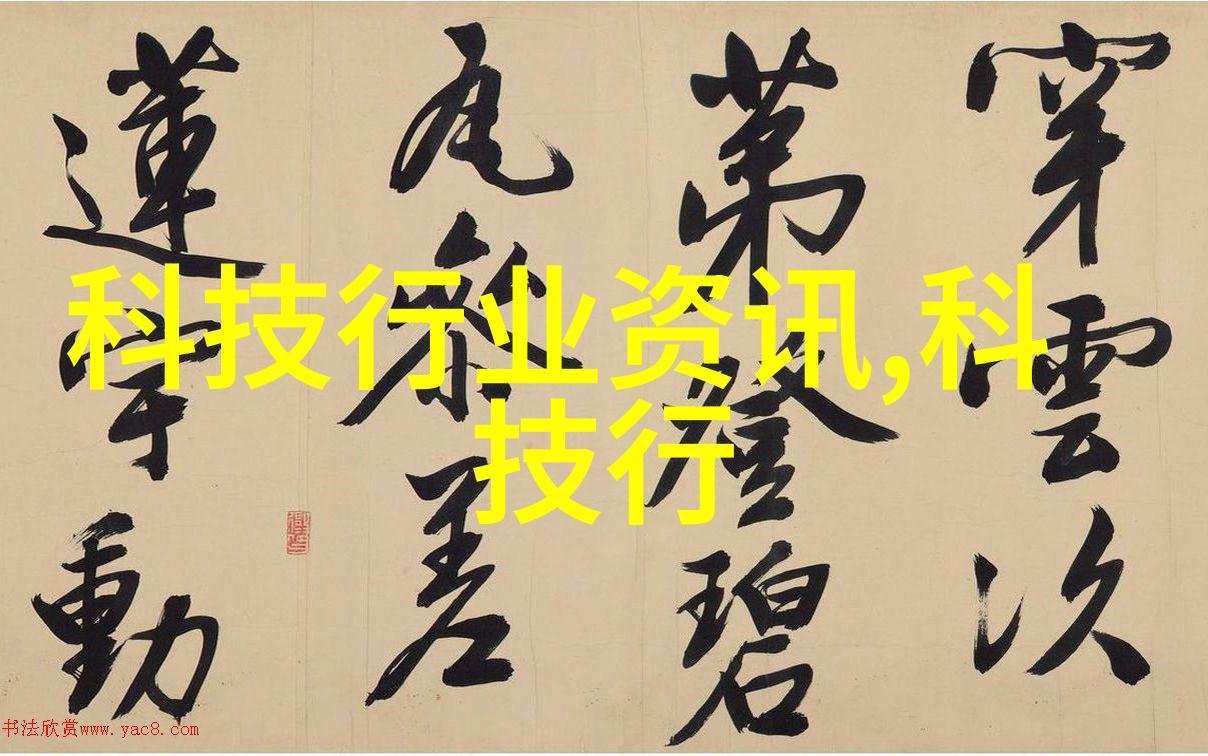 穿雲次
第碧
瓦參差
蓮宇動
科技行业资讯,科
技行
书法欣赏www.yac8.com